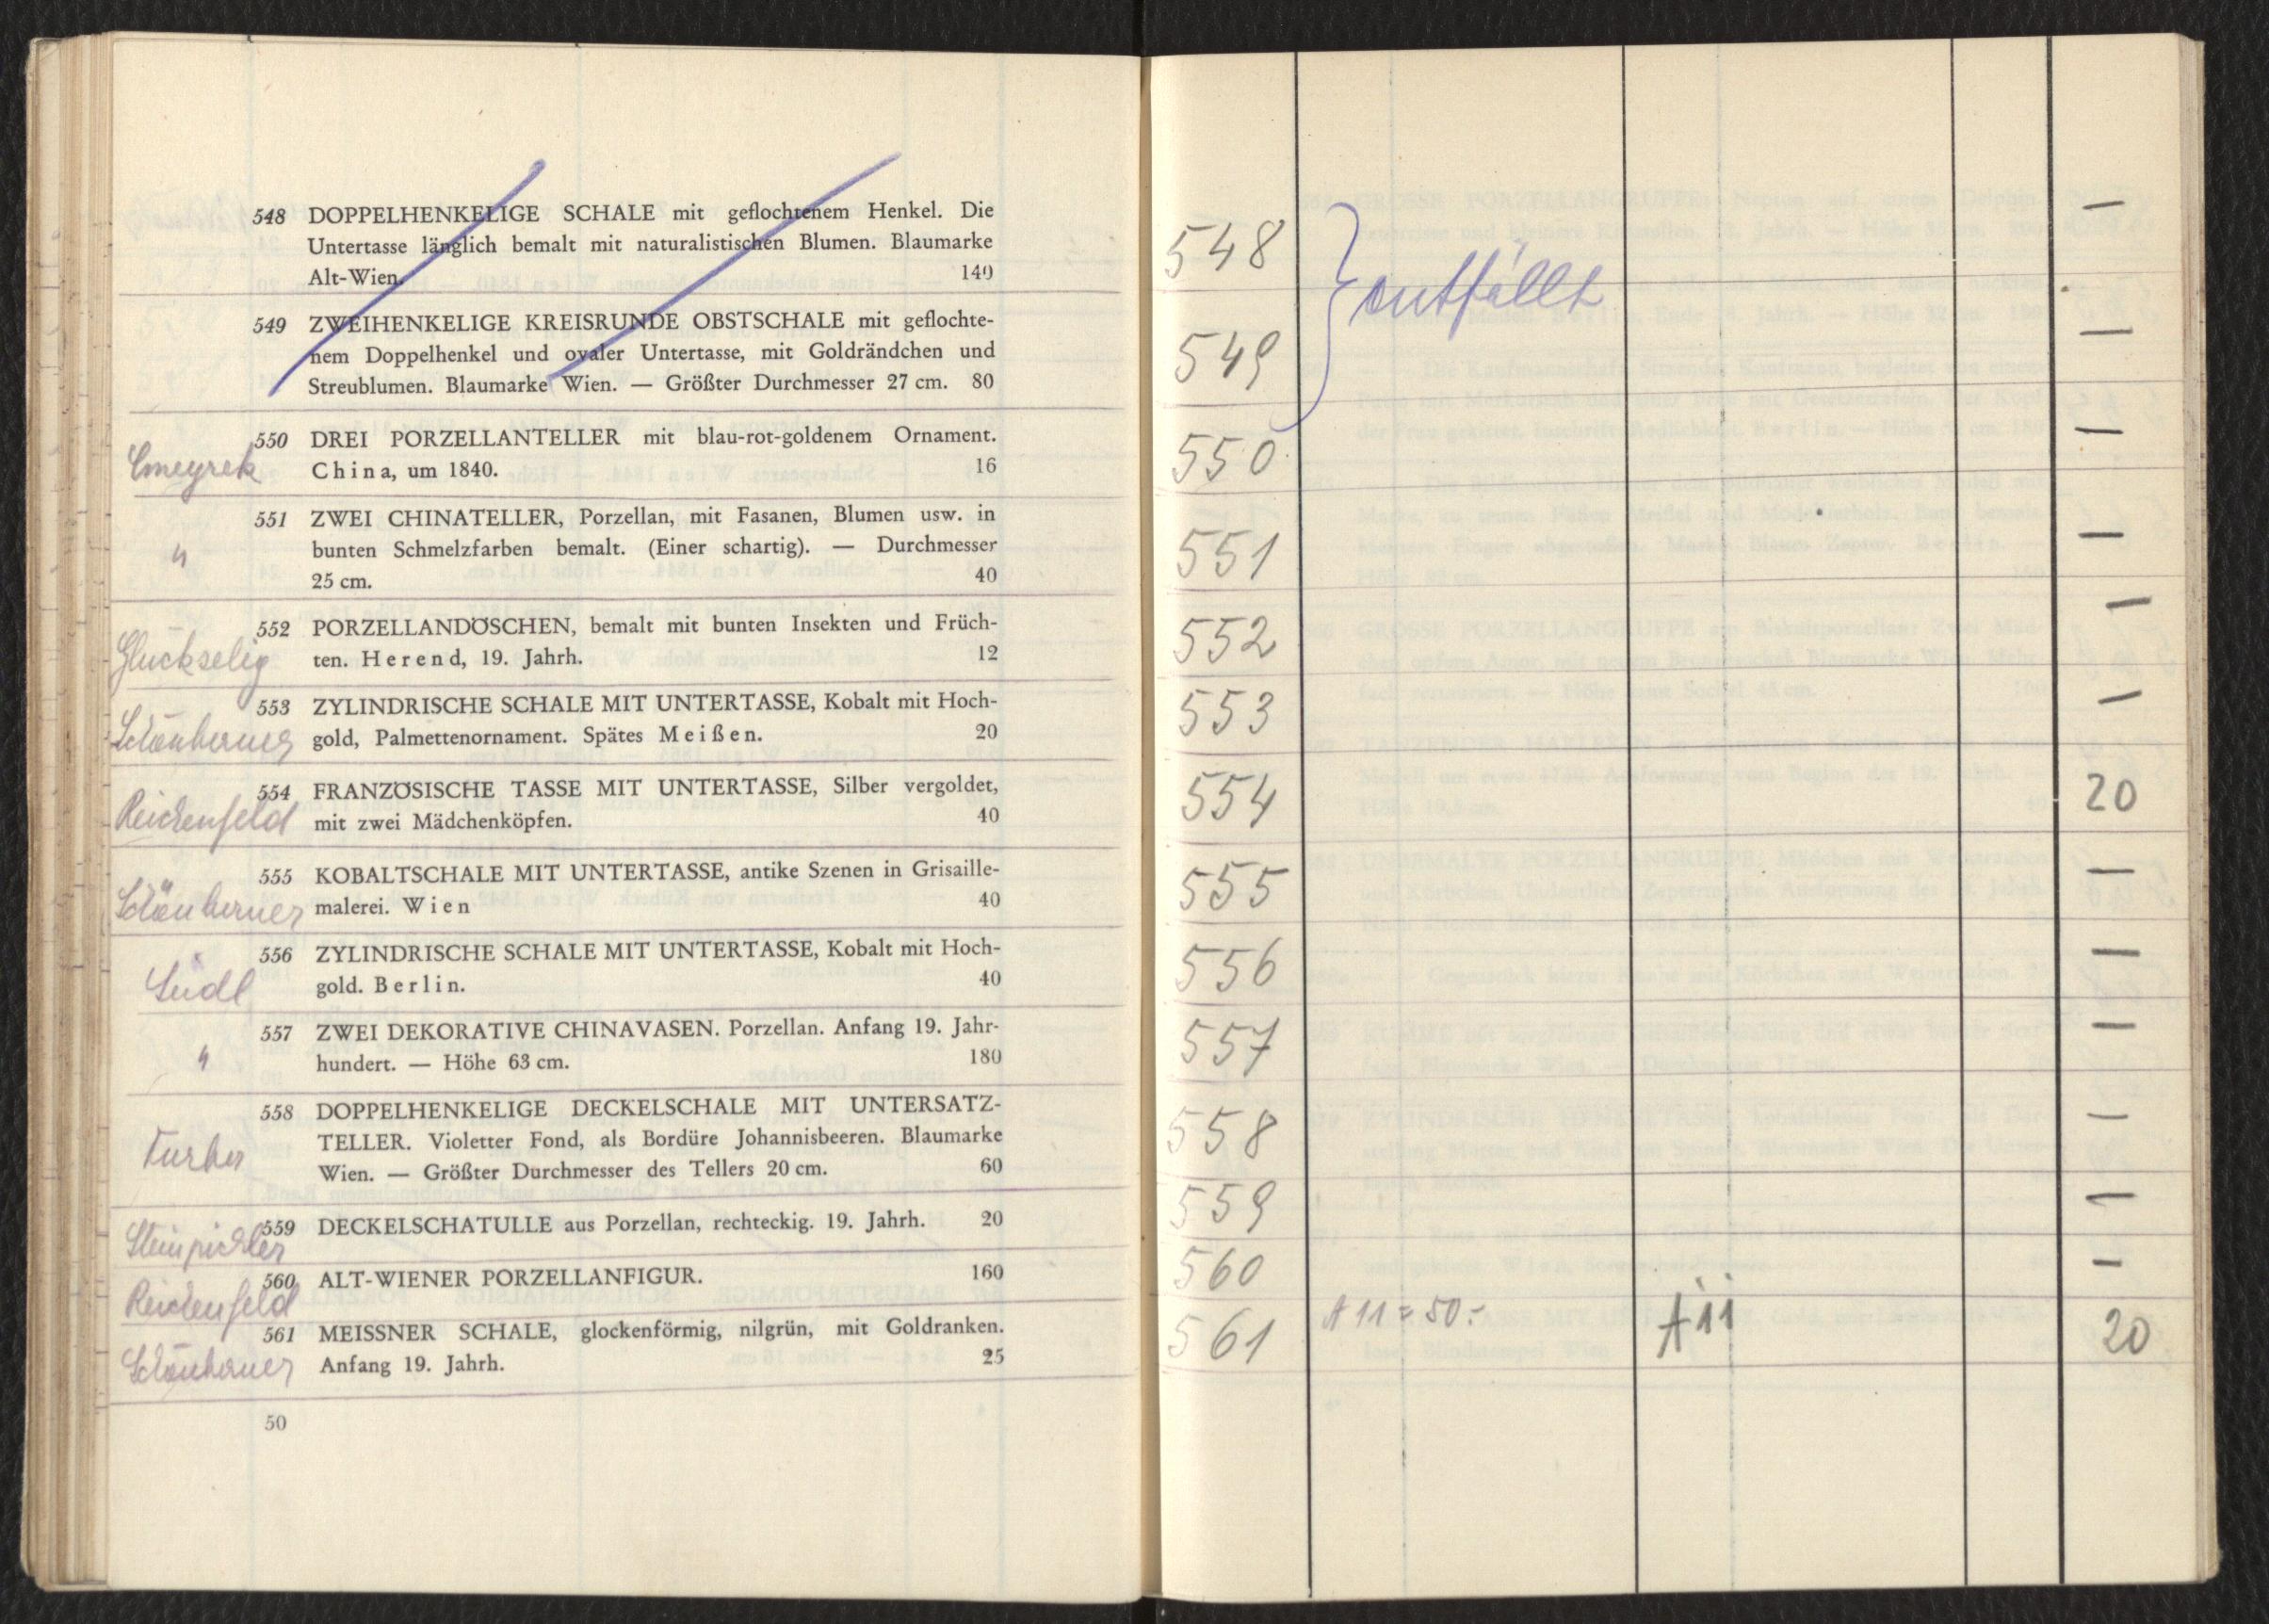 548 DOPPELHENKELIGE SCHALE mit geflochtenem Henkel. Die
Untertasse länglich bemalt mit naturalistischen Blumen. Blaumarke
Alt-Wien. 140
549 ZWEIHENKELIGE KREISRUNDE OBSTSCHALE mit geflochte-
nem Doppelhenkel und ovaler Untertasse, mit Goldrändchen und
Streublumen. Blaumarke Wien. — Größter Durchmesser 27 cm. 80
550 DREI PORZELLANTELLER mit blau-rot-goldenem Ornament.
China, um 1840. 16
551 ZWEI CHINATELLER, Porzellan, mit Fasanen, Blumen usw. in
" bunten Schmelzfarben bemalt. (Einer schartig). — Durchmesser
25 cm. 40
552 PORZELLANDÖSCHEN, bemalt mit bunten Insekten und Früch-
Glückselig ten. Herend, 19. Jahrh. 12
553 ZYLINDRISCHE SCHALE MIT UNTERTASSE, Kobalt mit Hoch-
gold, Palmettenornament. Spätes Meißen. 20
554 FRANZÖSISCHE TASSE MIT UNTERTASSE, Silber vergoldet,
Reichenfeld mit zwei Mädchenköpfen. 40
555 KOBALTSCHALE MIT UNTERTASSE, antike Szenen in Grisaille-
malerei. Wien 40
556 ZYLINDRISCHE SCHALE MIT UNTERTASSE, Kobalt mit Hoch-
gold. Berlin. 40
557 ZWEI DEKORATIVE CHINAVASEN. Porzellan. Anfang 19. Jahr-
" hundert. — Höhe 63 cm. 180
558 DOPPELHENKELIGE DECKELSCHALE MIT UNTERSATZ-
TELLER. Violetter Fond, als Bordüre Johannisbeeren. Blaumarke
Wien. — Größter Durchmesser des Tellers 20 cm. 60
559 DECKELSCHATULLE aus Porzellan, rechteckig. 19. Jahrh. 20
560 ALT-WIENER PORZELLANFIGUR. 160
Reichenfeld
561 MEISSNER SCHALE, glockenförmig, nilgrün, mit Goldranken.
Anfang 19. Jahrh. 25
50
548 —
} entfällt
549 —
550 —
551 —
552 —
553 —
554 20
555 —
556 —
557 —
558 —
559 —
560 —
561 A 11 = 50.- A 11 20